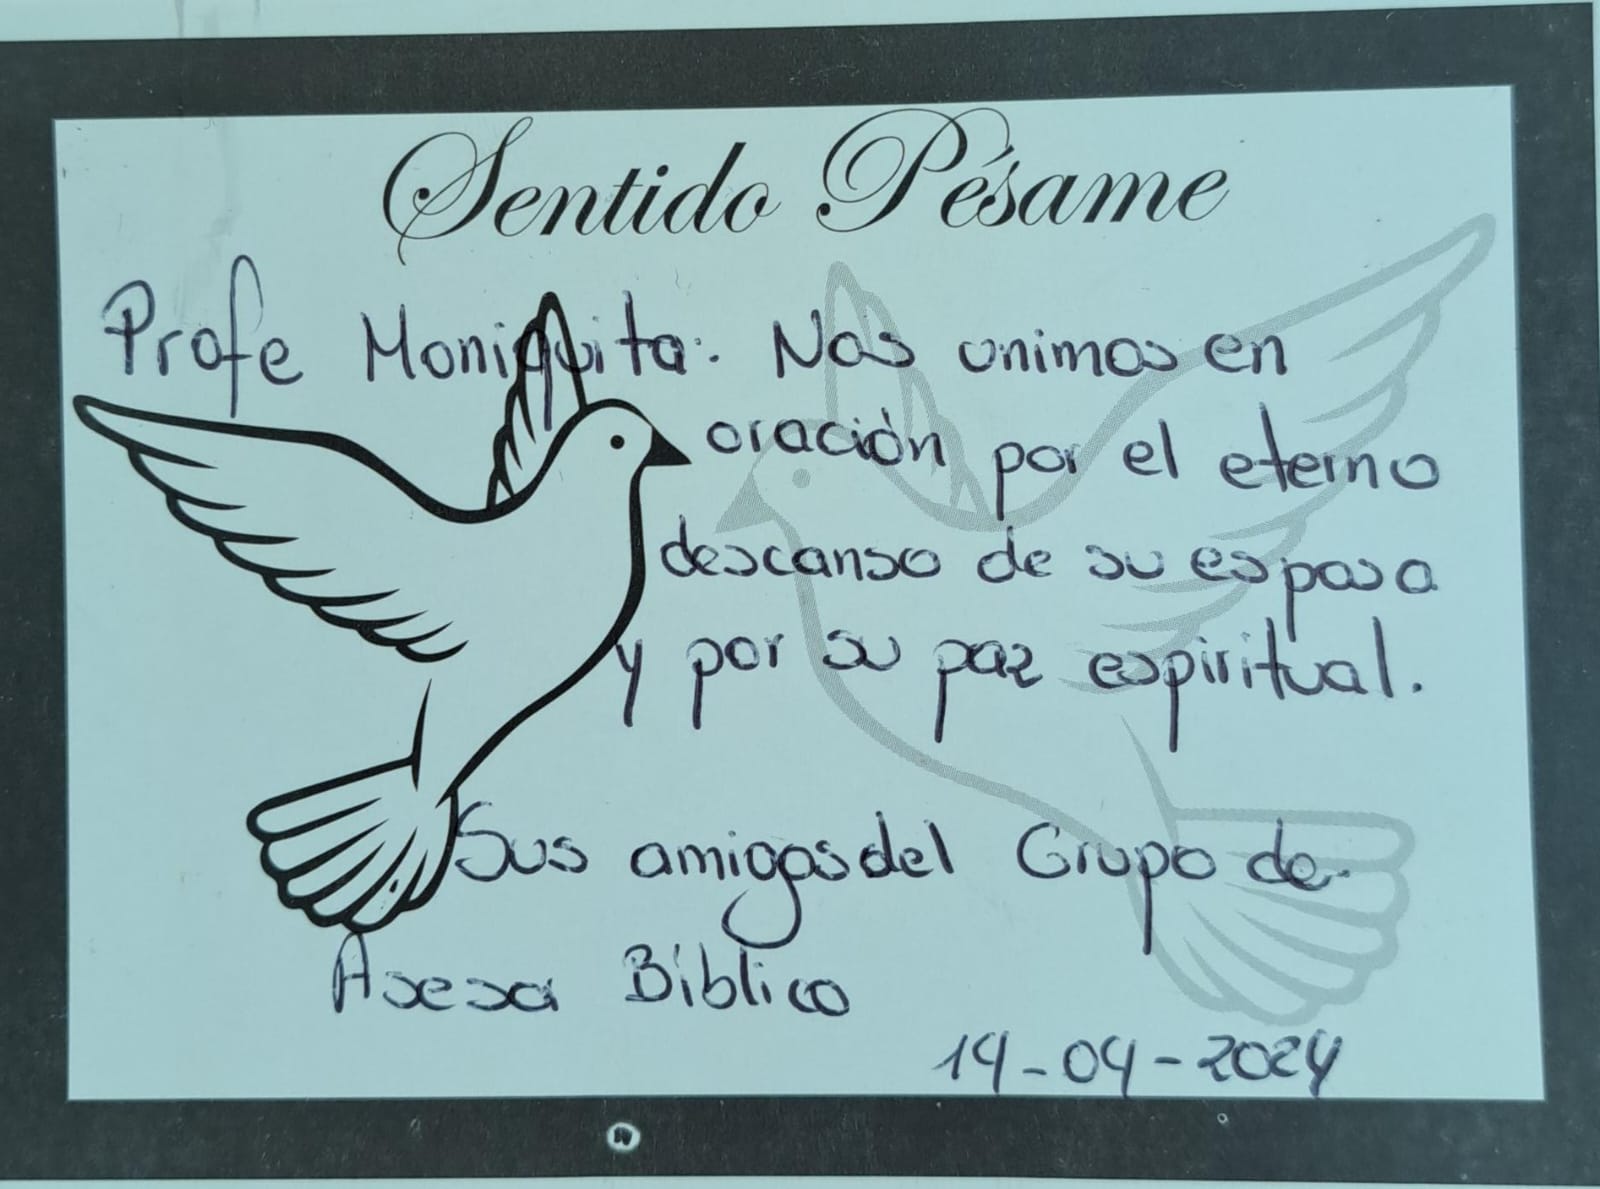 Sentido Pésame
Profe Moniquita: Nos unimos en
oración por el eterno
descanso de su esposa
y por su paz espiritual.
Sus amigos del Grupo de
Asesa Bíblico
14-04-2024